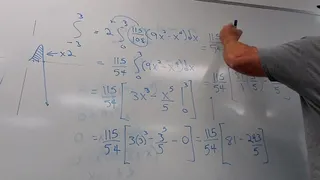 ∫₋₃³ = 2 ∫₀³ (115/108)(9x² - x⁴)dx = 115/54
x2
= 115/54 ∫₀³ (9x² - x⁴)dx = 115/54
= 115/54 [3x³ - x⁵/5 |₀³] = 115/54 [
= 115/54 [3(3)³ - 3⁵/5 - 0] = 115/54 [81 - 243/5]